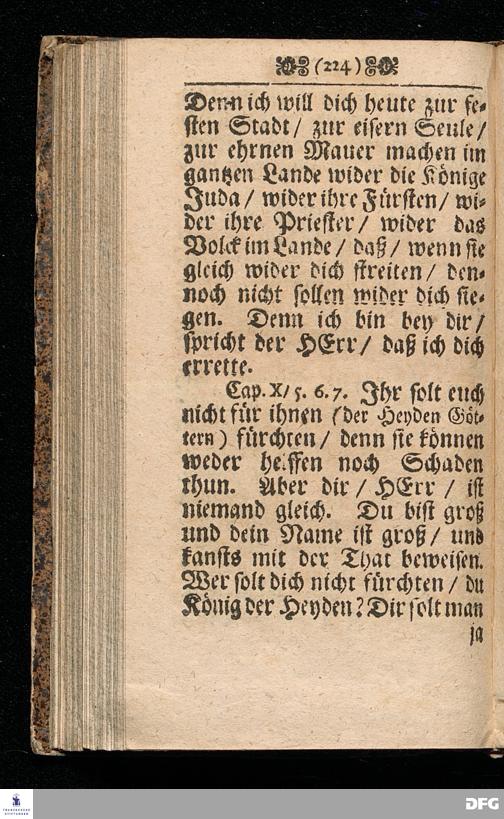 (224)
Denn ich will dich heute zur fe-
sten Stadt / zur eisern Seule /
zur ehrnen Mauer machen im
gantzen Lande wider die Könige
Juda / wider ihre Fürsten / wi-
der ihre Priester / wider das
Volck im Lande / daß / wenn sie
gleich wider dich streiten / den-
noch nicht sollen wider dich sie-
gen. Denn ich bin bey dir /
spricht der HErr / daß ich dich
errette.
Cap. X / 5. 6. 7. Ihr solt euch
nicht für ihnen (der Heyden Göt-
tern) fürchten / denn sie können
weder helffen noch Schaden
thun. Aber dir / HErr / ist
niemand gleich. Du bist groß
und dein Name ist groß / und
kansts mit der That beweisen.
Wer solt dich nicht fürchten / du
König der Heyden? Dir solt man
ja
FRANCKESCHE STIFTUNGEN
DFG